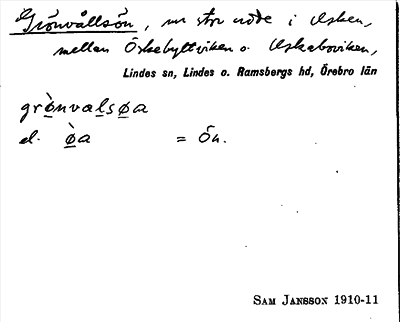 Grönvållsön, en stor udde i Usken,
mellan Öskebyttviken o. Uskaboviken,
Lindes sn, Lindes o. Ramsbergs hd, Örebro län
grò̲nvalsø̲a
el. ø̲̀a = Ön.
SAM JANSSON 1910-11